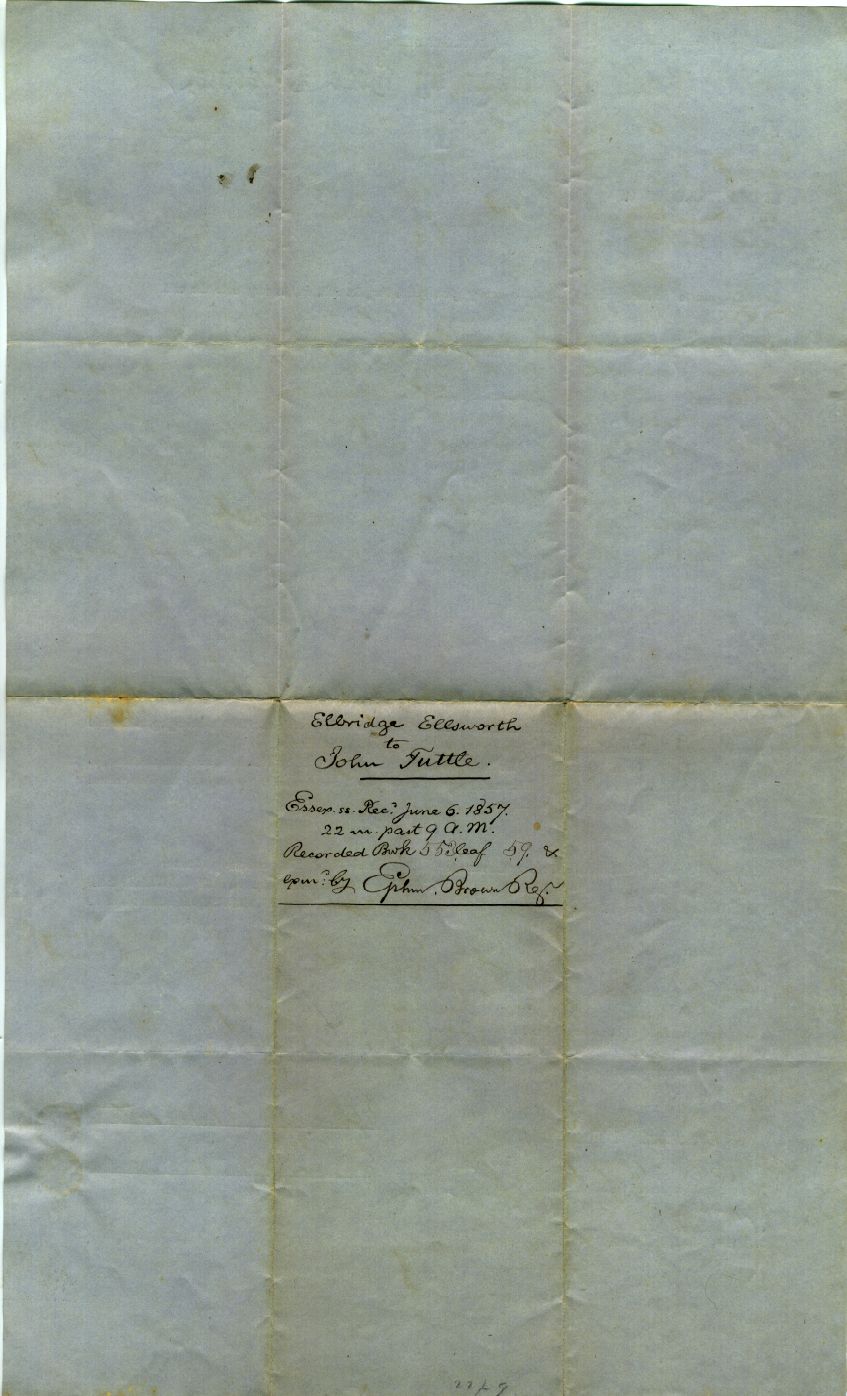 Elbridge Ellsworth
to
John Tuttle.
Essex. ss. Rec.d June 6. 1857.
22 m. past 9 A. M.
Recorded Book 553 leaf 59. &
exm.d by Ephm. Brown Reg.